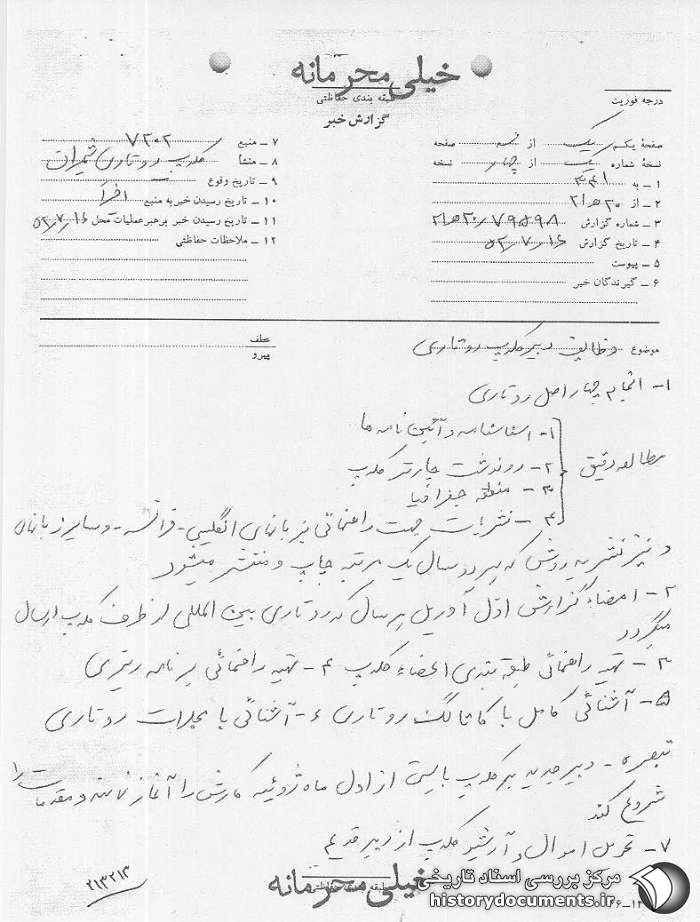 خیلی محرمانه
طبقه بندی حفاظتی
گزارش خبر
درجه فوریت
صفحهٔ یک از صفحه
نسخهٔ شمارهٔ یک از چهار نسخه
۱ - به ۳۴۱
۲ - از ۲۰ ه ۲۱
۳ - شماره گزارش ۷۹۵۹۸ / ۲۰ ه ۲۱
۴ - تاریخ گزارش ۱۶ / ۷ / ۵۲
۵ - پیوست
۶ - گیرندگان خبر
۷ - منبع ۷۲۰۲
۸ - منشأ کلوب روتاری شمیران
۹ - تاریخ وقوع
۱۰ - تاریخ رسیدن خبر به منبع اخیراً
۱۱ - تاریخ رسیدن خبر برهبر عملیات محل ۱۶ / ۷ / ۵۲
۱۲ - ملاحظات حفاظتی
عطف
پیرو
موضوع وظائف دبیر کلوب روتاری
۱- انجام چهار اصل روتاری
مطالعه دقیق
۱- اساسنامه و آئین نامه ها
۲- رونوشت چارتر کلوب
۳- منطقه جغرافیا
۴- نشریات جهت راهنمائی بزبانهای انگلیسی - فرانسه - و سایر زبانها
و نیز نشریه روش که هر دو سال یک مرتبه چاپ و منتشر میشود
۲- امضاء گزارش اول آوریل هر سال که روتاری بین المللی از طرف کلوب ارسال
میگردد
۳- تهیه راهنمائی طبقه بندی اعضاء کلوب ۴- تهیه راهنمائی برنامه ریزی
۵- آشنائی کامل با کاتالگ روتاری ۶- آشنائی با مجلات روتاری
تبصره - دبیر جدید هر کلوب بایستی از اول ماه ژوئیه کارش را آغاز نماید و مقدمات را
شروع کند
۷- تحویل اموال و آرشیو کلوب از دبیر قدیم
خیلی محرمانه
طبقه بندی حفاظتی
۲۱۳۲۱۳
مرکز بررسی اسناد تاریخی
historydocuments.ir